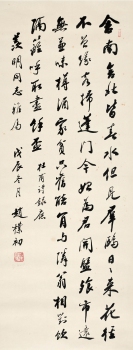 舍南舍北皆春水但見羣鷗日日來花徑
不曾緣客掃蓬門今始為君開盤飧市遠
無兼味樽酒家貧只舊醅肯與鄰翁相對飲
隔籬呼取盡餘杯 杜甫詩錄應
明同志雅屬 戊辰冬月 趙樸初